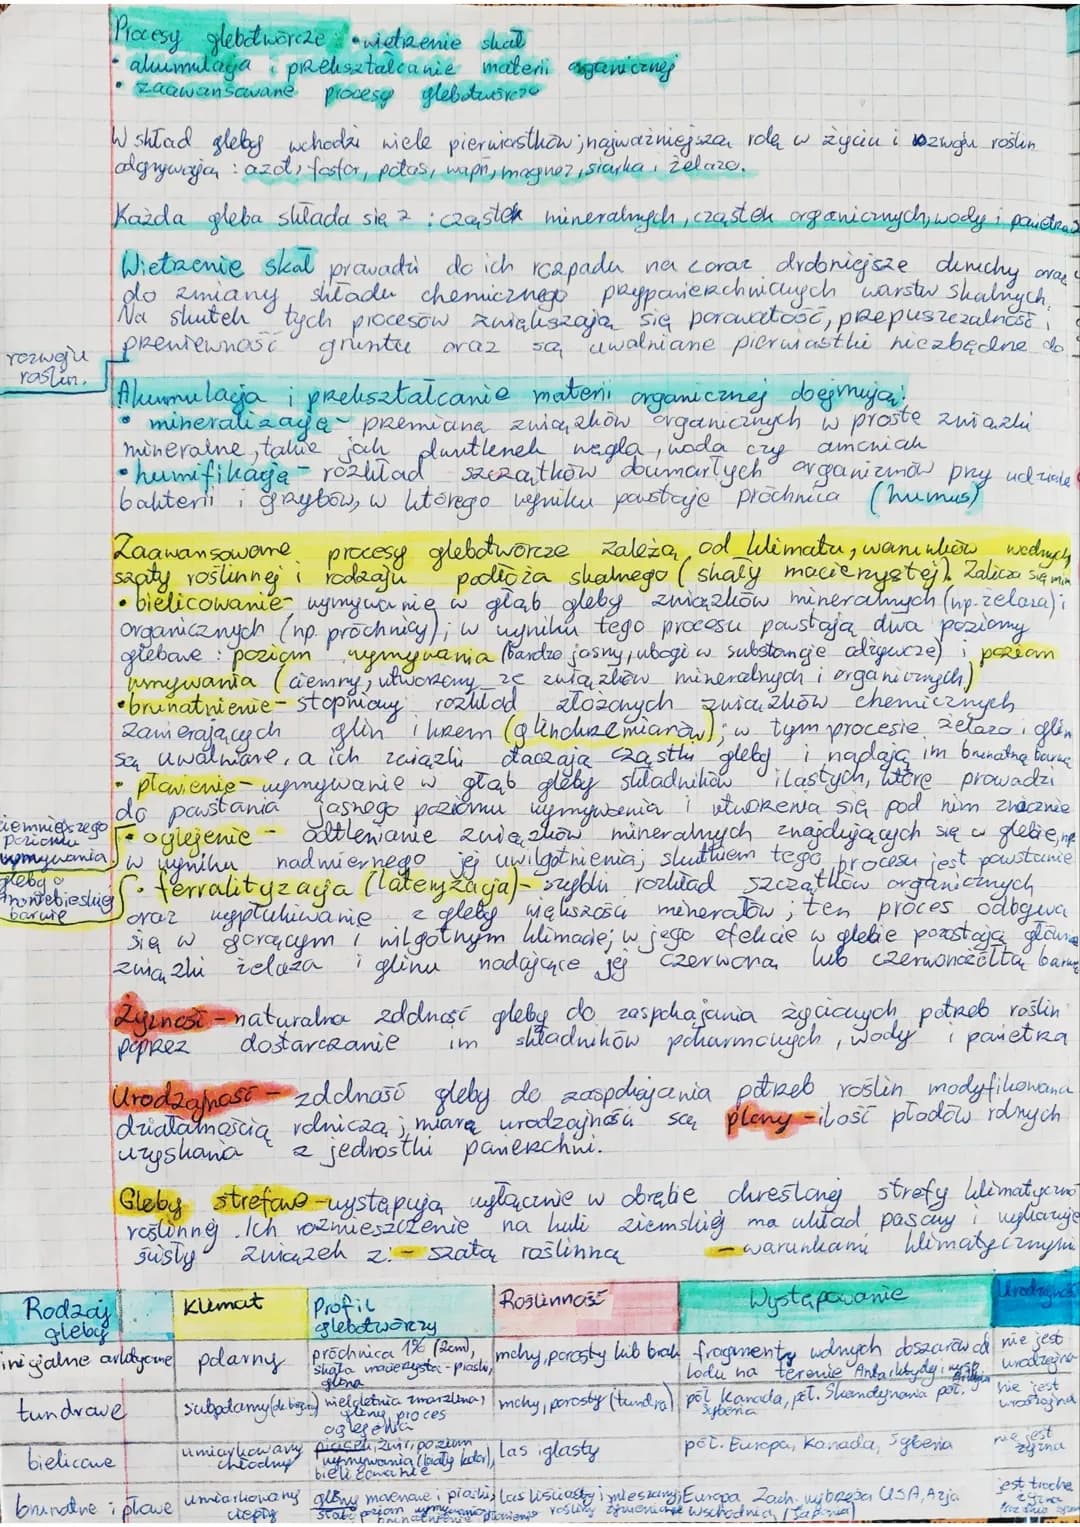 Procesy glebotwórcze • wietrzenie skał
• akumulacja i przekształcanie materii organicznej
• zaawansowane procesy glebotwórcze
W skład gleby wchodzi wiele pierwiastków; najważniejszą rolę w życiu i rozwoju roślin
odgrywają: azot, fosfor, potas, wapń, magnez, siarka i żelazo.
Każda gleba składa się z: cząstek mineralnych, cząstek organicznych, wody i powietrza
Wietrzenie skał prowadzi do ich rozpadu na coraz drobniejsze okruchy oraz
do zmiany składu chemicznego przypowierzchniowych warstw skalnych.
Na skutek tych procesów zwiększają się porowatość, przepuszczalność i
przewiewność gruntu oraz są uwalniane pierwiastki niezbędne do
rozwoju
roślin.
Akumulacja i przekształcanie materii organicznej obejmują:
• mineralizację - przemianę związków organicznych w proste związki
mineralne, takie jak dwutlenek węgla, woda czy amoniak
• humifikację - rozkład szczątków obumarłych organizmów przy udziale
bakterii i grzybów, w którego wyniku powstaje próchnica (humus)
Zaawansowane procesy glebotwórcze zależą od klimatu, warunków wodnych,
szaty roślinnej i rodzaju podłoża skalnego (skały macierzystej). Zalicza się min
• bielicowanie - wymywanie w głąb gleby związków mineralnych (np. żelaza) i
organicznych (np. próchnicy); w wyniku tego procesu powstają dwa poziomy
glebowe: poziom wymywania (bardzo jasny, ubogi w substancje odżywcze) i poziom
wmywania (ciemny, utworzony ze związków mineralnych i organicznych)
• brunatnienie - stopniowy rozkład złożonych związków chemicznych
zawierających glin i krzem (glinokrzemianów); w tym procesie żelazo i glin
są uwalniane, a ich związki otaczają cząstki gleby i nadają im brunatną barwę
• płowienie - wymywanie w głąb gleby składników ilastych, które prowadzi
do powstania jasnego poziomu wymywania i utworzenia się pod nim znacznie
ciemniejszego
poziomu
wmywania
• oglejenie - odtlenianie związków mineralnych znajdujących się w glebie, np
w wyniku nadmiernego jej uwilgotnienia; skutkiem tego procesu jest powstanie
gleby o
niebieskiej
barwie
• ferralityzacja (lateryzacja) - szybki rozkład szczątków organicznych
oraz wypłukiwanie z gleby większości minerałów; ten proces odbywa
się w gorącym i wilgotnym klimacie; w jego efekcie w glebie pozostają głównie
związki żelaza i glinu nadające jej czerwoną lub czerwonożółtą barwę
Żyzność - naturalna zdolność gleby do zaspokajania życiowych potrzeb roślin
poprzez dostarczanie im składników pokarmowych, wody i powietrza
Urodzajność - zdolność gleby do zaspokajania potrzeb roślin modyfikowana
działalnością rolniczą; miarą urodzajności są plony - ilość płodów rolnych
uzyskana z jednostki powierzchni.
Gleby strefowe - występują wyłącznie w obrębie określonej strefy klimatyczno
roślinnej. Ich rozmieszczenie na kuli ziemskiej ma układ pasowy i wykazuje
ścisły związek z: - szatą roślinną - warunkami klimatycznymi
Rodzaj gleby | Klimat | Profil glebotwórczy | Roślinność | Występowanie | Urodzajność
inicjalne arktyczne | polarny | próchnica 1% (2cm), skała macierzysta - piaski, glina | mchy, porosty lub brak | fragmenty wolnych obszarów od lodu na terenie Antarktydy i wysp | nie jest urodzajna
tundrowe | subpolarny | wieloletnia zmarzlina, gliny, proces oglejenia | mchy, porosty (tundra) | płn. Kanada, płn. Skandynawia płn. Syberia | nie jest urodzajna
bielicowe | umiarkowany chłodny | piaski, żwir, poziom wymywania (biały kolor), bielicowanie | las iglasty | płn. Europa, Kanada, Syberia | nie jest żyzna
brunatne i płowe | umiarkowany ciepły | gliny morenowe i piaski, słabo poziom wymywania | las liściasty i mieszany, rośliny | Europa Zach. wybrzeża USA, Azja Wschodnia (Japonia) | jest trochę żyzna